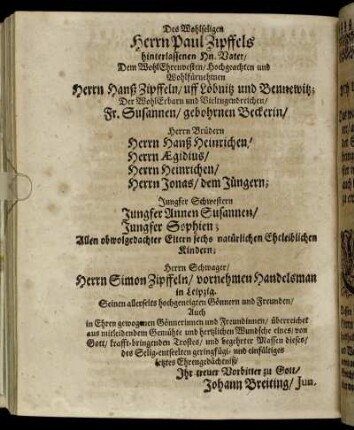 Des Wohlseligen
Herrn Paul Zipffels
hinterlassenen Hn. Vater/
Dem WohlEhrenvesten/ Hochgeachten und
Wohlfürnehmen
Herrn Hanß Zipffeln/ uff Löbnitz und Bennewitz;
Der WohlErbarn und Vieltugendreichen/
Fr. Susannen/ gebohrnen Beckerin/
Herrn Brüdern
Herrn Hanß Heinrichen/
Herrn Ægidius/
Herrn Heinrichen/
Herrn Jonas/ dem Jüngern;
Jungfer Schwestern
Jungfer Annen Susannen/
Jungfer Sophien;
Allen obwolgedachter Eltern sechs natürlichen Eheleiblichen
Kindern;
Herrn Schwager/
Herrn Simon Zipffeln/ vornehmen Handelsman
in Leipzig.
Seinen allerseits hochgeneigten Gönnern und Freunden/
Auch
in Ehren gewognen Gönnerinnen und Freundinnen/ überreichet
aus mitleidendem Gemühte und hertzlichem Wundsche eines/ von
Gott/ krafft-bringenden Trostes/ und begehrter Massen dieses/
des Selig-entseelten geringfügi- und einfältiges
letztes Ehrengedächtniß/
Ihr treuer Vorbitter zu Gott/
Johann Breiting/ Jun.